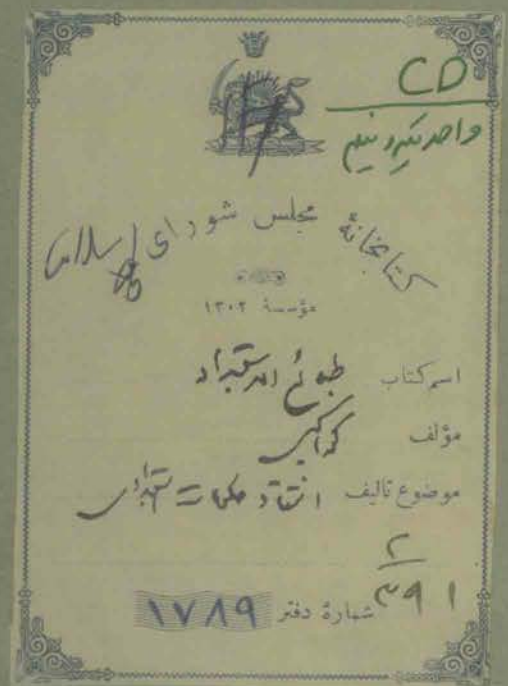 CD
واحد تکبرد نیم
کتابخانهٔ مجلس شورای اسلامی
مؤسسهٔ ۱۳۰۲
اسم کتاب طبائع الاستبداد
مؤلف کواکبی
موضوع تالیف انتقاد حکومت استبدادی
۲
۳۹۱
شمارهٔ دفتر ۱۷۸۹